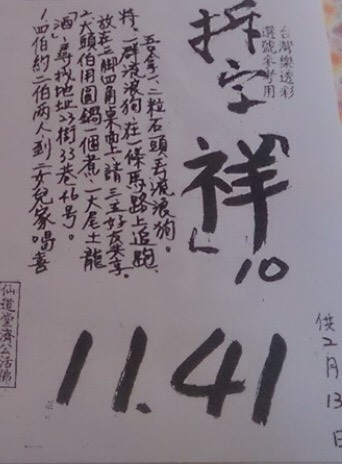 台灣樂透彩
選號參考用
拆字「祥」10
大伯約二伯兩人到三女兒家唱喜
「酒」尋找地址23街33巷46号。
大頭伯用圓鍋一個煮一大尾土龍
放在三脚四角桌 請三五好友共享。
將一群流浪狗在一條馬路上追跑
拿一、二粒石頭丟流浪狗。
11.41
供2月13日
仙道堂濟公活佛